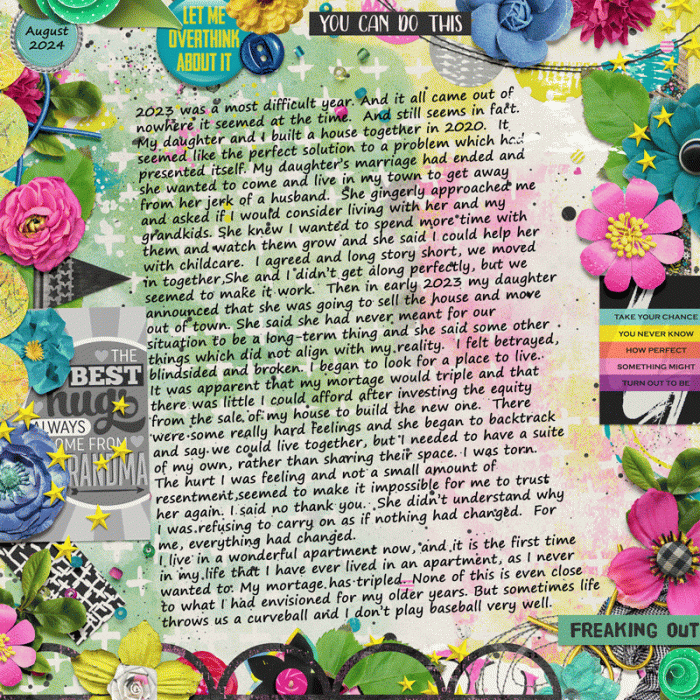 August
2024
LET ME
OVERTHINK
ABOUT IT
YOU CAN DO THIS
2023 was a most difficult year. And it all came out of
nowhere it seemed at the time.  And still seems in fact.
My daughter and I built a house together in 2020.  It
seemed like the perfect solution to a problem which had
presented itself. My daughter's marriage had ended and
she wanted to come and live in my town to get away
from her jerk of a husband.  She gingerly approached me
and asked if I would consider living with her and my
grandkids. She knew I wanted to spend more time with
them and watch them grow and she said I could help her
with childcare.  I agreed and long story short, we moved
in together. She and I didn't get along perfectly, but we
seemed to make it work.  Then in early 2023 my daughter
announced that she was going to sell the house and move
out of town. She said she had never meant for our
situation to be a long-term thing and she said some other
things which did not align with my reality.  I felt betrayed,
blindsided and broken. I began to look for a place to live.
It was apparent that my mortage would triple and that
there was little I could afford after investing the equity
from the sale of my house to build the new one.  There
were some really hard feelings and she began to backtrack
and say we could live together, but I needed to have a suite
of my own, rather than sharing their space. I was torn.
The hurt I was feeling and not a small amount of
resentment seemed to make it impossible for me to trust
her again. I said no thank you.  She didn't understand why
I was refusing to carry on as if nothing had changed.  For
me, everything had changed.
I live in a wonderful apartment now, and it is the first time
in my life that I have ever lived in an apartment, as I never
wanted to. My mortage has tripled. None of this is even close
to what I had envisioned for my older years. But sometimes life
throws us a curveball and I don't play baseball very well.
THE
BEST
hug
ALWAYS
COME FROM
GRANDMA
TAKE YOUR CHANCE
YOU NEVER KNOW
HOW PERFECT
SOMETHING MIGHT
TURN OUT TO BE
FREAKING OUT